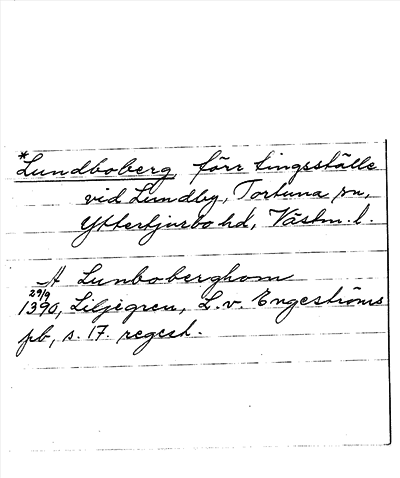 *Lundboberg, förr tingsställe
vid Lundby, Tortuna sn,
Yttertjurbo hd, Västm. l.
A Lunboberghom
29/9
1390, Liljegren, L. v. Engeströms
pb, s. 17. regest.